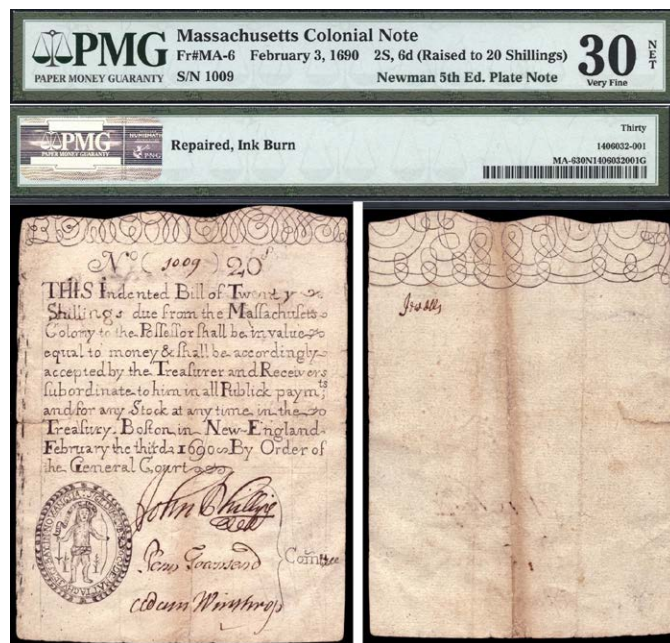 PMG
PAPER MONEY GUARANTY
Massachusetts Colonial Note
Fr#MA-6 February 3, 1690 2S, 6d (Raised to 20 Shillings)
S/N 1009 Newman 5th Ed. Plate Note
30 NET
Very Fine
PMG
PAPER MONEY GUARANTY
P·N·G
Repaired, Ink Burn
Thirty
1406032-001
MA-630N1406032001G
No ( 1009 ) 20s
THIS Indented Bill of Twenty
Shillings due from the Massachusets
Colony to the Possessor shall be in value
equal to money & shall be accordingly
accepted by the Treasurer and Receivers
subordinate to him in all Publick paymts
and for any Stock at any time in the
Treasury. Boston in New-England
February the third 1690 By Order of
the General Court
John Phillips
Penn Townsend
Adam Winthrop
Comtee